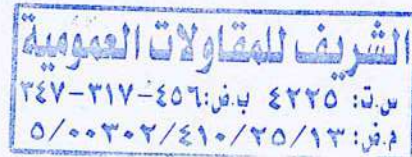 الشريف للمقاولات العمومية
س.ت: ٤٢٢٥ ب.ض: ٤٥٦-٣١٧-٣٤٧
م.ض: ٥/٠٠٣٠٢/٤١٠/٢٥/١٣